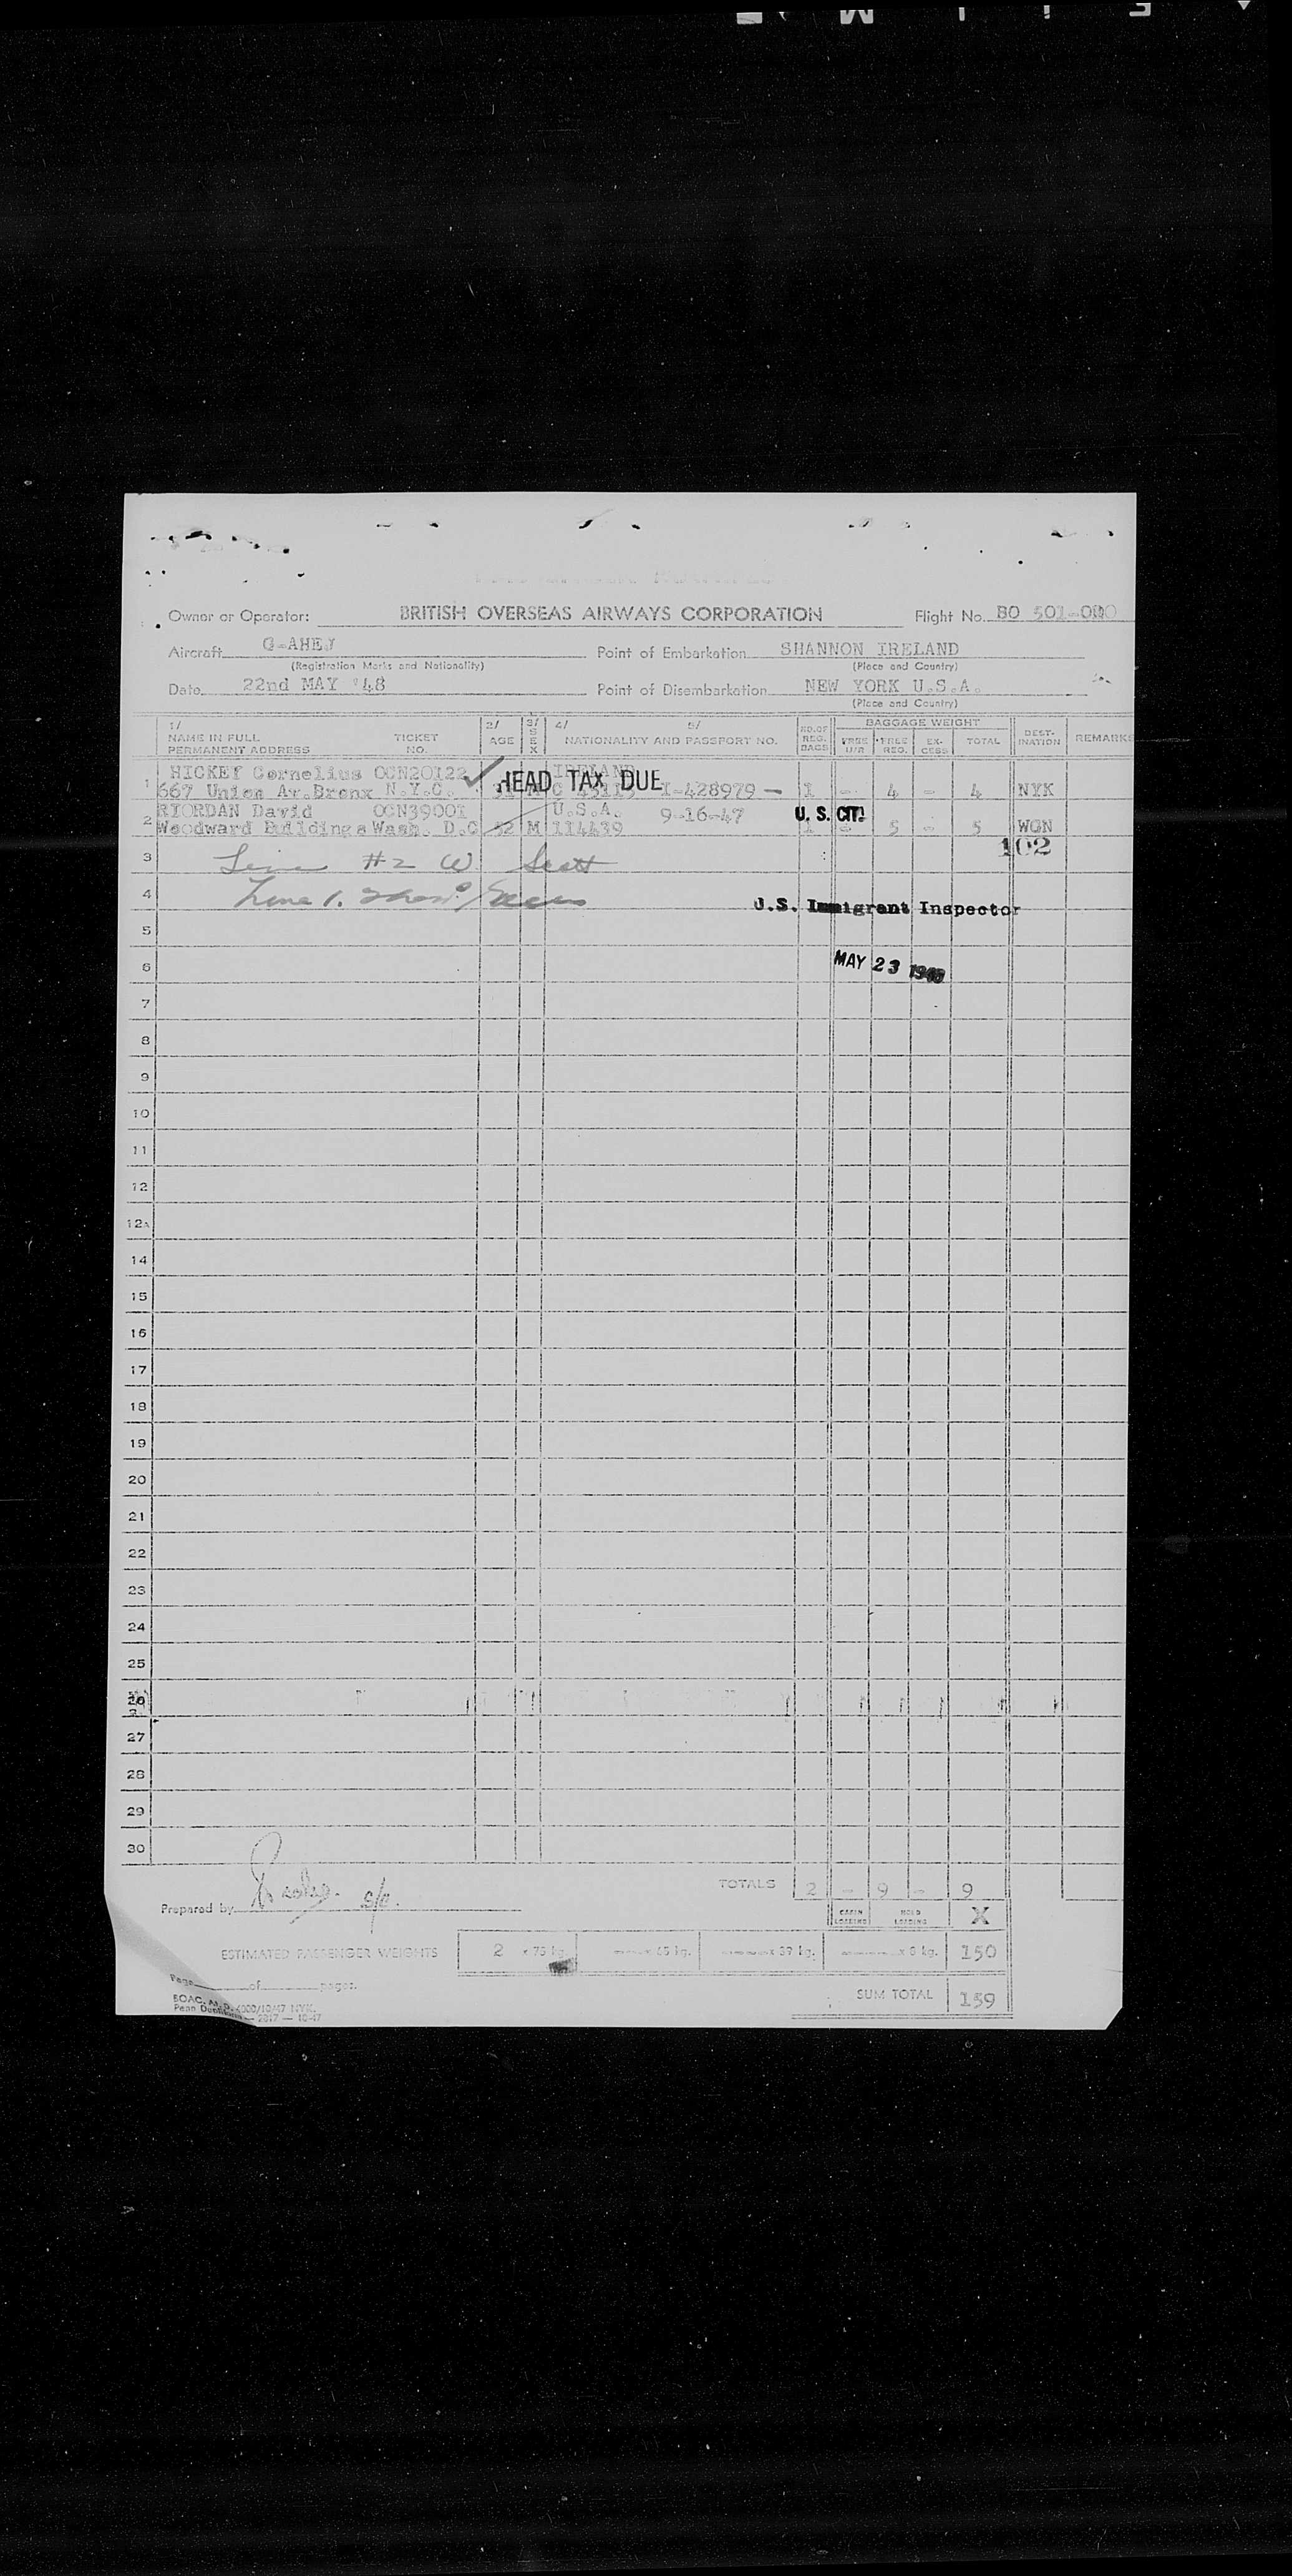 Owner or Operator: BRITISH OVERSEAS AIRWAYS CORPORATION Flight No. BO 501-
Aircraft G-AHEJ Point of Embarkation SHANNON IRELAND
(Registration Marks and Nationality) (Place and Country)
Date 22nd MAY '48 Point of Disembarkation NEW YORK U.S.A.
(Place and Country)
1/ 2/ 3/ 4/ 5/ NO. OF REG. BAGS BAGGAGE WEIGHT DEST-INATION REMARKS
NAME IN FULL TICKET AGE SEX NATIONALITY AND PASSPORT NO. FREE U/R FREE REG. EX-CESS TOTAL
PERMANENT ADDRESS NO.
HICKEY Cornelius OCN20122 IRELAND
1 667 Union Av. Bronx N.Y.C. HEAD TAX DUE I-428979 — 1 - 4 - 4 NYK
RIORDAN David OCN39001 U.S.A. 9-16-47 U. S. CIT.
2 Woodward Buildings Wash. D.C 52 M 114439 5 - 5 WGN
102
3 Line #2 W Scott
4 Line 1.
U.S. Immigrant Inspector
5
6 MAY 23 1948
7
8
9
10
11
12
12A
14
15
16
17
18
19
20
21
22
23
24
25
26
27
28
29
30
TOTALS 2 - 9 - 9
Prepared by
CABIN LOADING HOLD LOADING X
ESTIMATED PASSENGER WEIGHTS 2 x 75 kg. x 65 kg. x 39 kg. x 8 kg. 150
Page of pages.
SUM TOTAL 159